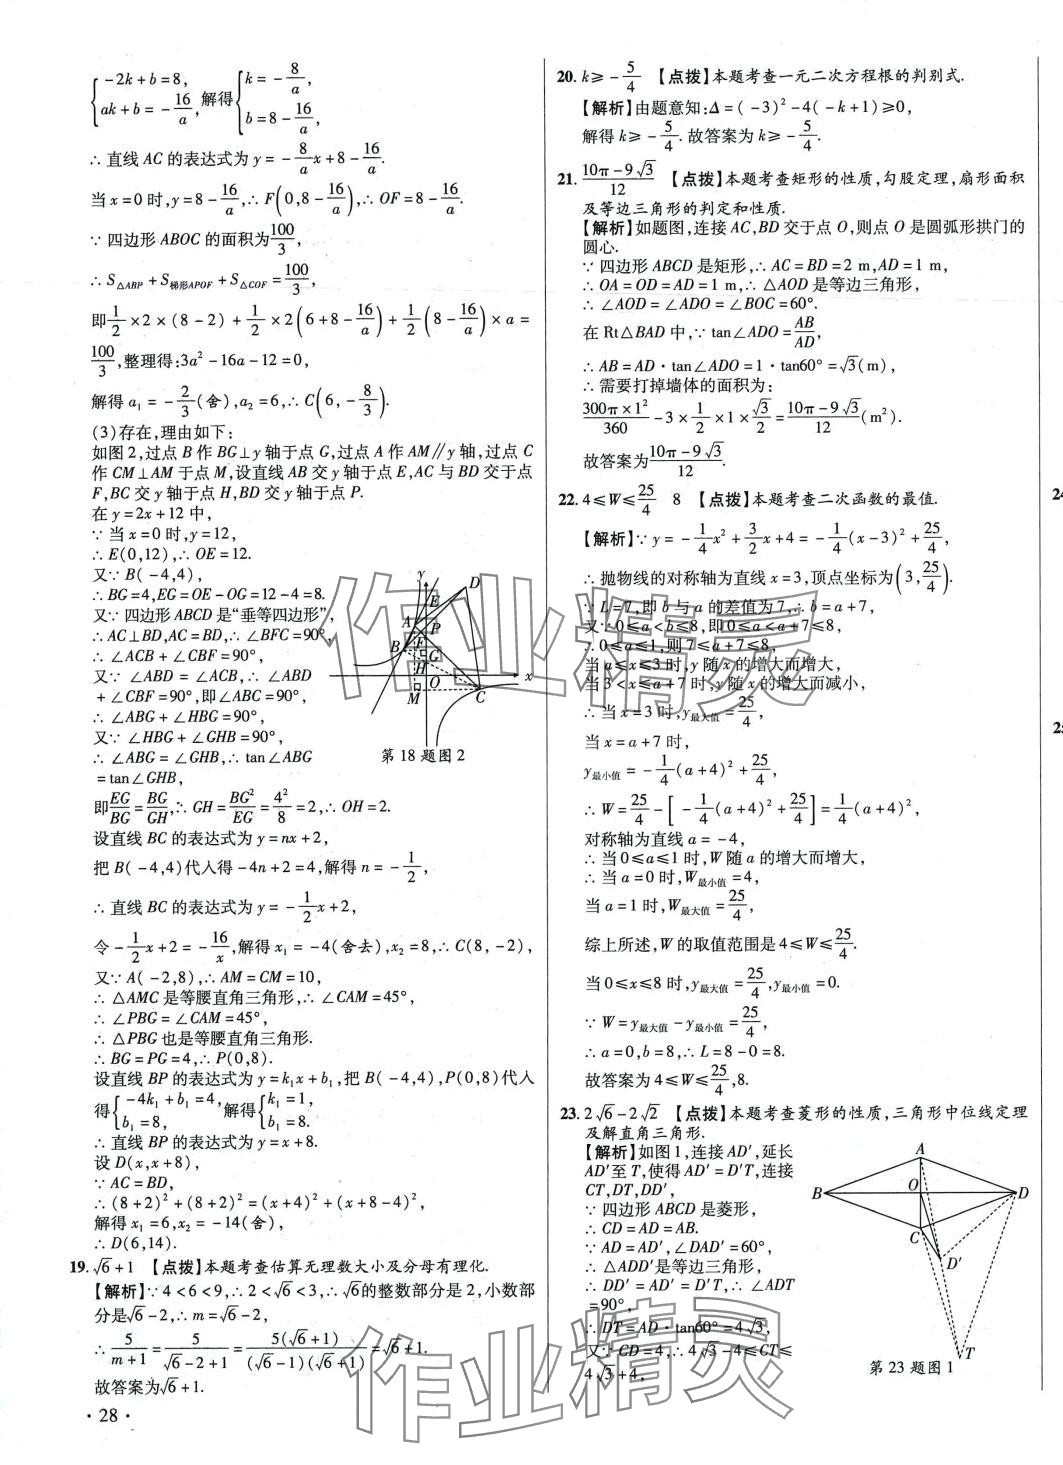 {−2k+b=8, ak+b=−16/a, 解得{k=−8/a, b=8−16/a,
∴直线 AC 的表达式为 y=−8/a x+8−16/a.
当 x=0 时,y=8−16/a,∴F(0,8−16/a),∴OF=8−16/a.
∵四边形 ABOC 的面积为100/3,
∴S△ABP+S梯形APOF+S△COF=100/3,
即1/2×2×(8−2)+1/2×2(6+8−16/a)+1/2(8−16/a)×a=
100/3,整理得:3a²−16a−12=0,
解得 a₁=−2/3(舍),a₂=6,∴C(6,−8/3).
(3)存在,理由如下:
如图 2,过点 B 作 BG⊥y 轴于点 G,过点 A 作 AM∥y 轴,过点 C
作 CM⊥AM 于点 M,设直线 AB 交 y 轴于点 E,AC 与 BD 交于点
F,BC 交 y 轴于点 H,BD 交 y 轴于点 P.
在 y=2x+12 中,
∵当 x=0 时,y=12,
∴E(0,12),∴OE=12.
又∵B(−4,4),
∴BG=4,EG=OE−OG=12−4=8.
又∵四边形 ABCD 是“垂等四边形”,
∴AC⊥BD,AC=BD,∴∠BFC=90°,
∴∠ACB+∠CBF=90°,
又∵∠ABD=∠ACB,∴∠ABD
+∠CBF=90°,即∠ABC=90°,
∴∠ABG+∠HBG=90°,
又∵∠HBG+∠GHB=90°,
∴∠ABG=∠GHB,∴tan∠ABG
=tan∠GHB,
即EG/BG=BG/GH,∴GH=BG²/EG=4²/8=2,∴OH=2.
y
D
E
A
P
B
F
G
H
O
x
M
C
第 18 题图 2
设直线 BC 的表达式为 y=nx+2,
把 B(−4,4)代入得−4n+2=4,解得 n=−1/2,
∴直线 BC 的表达式为 y=−1/2x+2,
令−1/2x+2=−16/x,解得 x₁=−4(舍去),x₂=8,∴C(8,−2),
又∵A(−2,8),∴AM=CM=10,
∴△AMC 是等腰直角三角形,∴∠CAM=45°,
∴∠PBG=∠CAM=45°,
∴△PBG 也是等腰直角三角形.
∴BG=PG=4,∴P(0,8).
设直线 BP 的表达式为 y=k₁x+b₁,把 B(−4,4),P(0,8)代入
得{−4k₁+b₁=4, b₁=8, 解得{k₁=1, b₁=8.
∴直线 BP 的表达式为 y=x+8.
设 D(x,x+8),
∵AC=BD,
∴(8+2)²+(8+2)²=(x+4)²+(x+8−4)²,
解得 x₁=6,x₂=−14(舍),
∴D(6,14).
19. √6+1 【点拨】本题考查估算无理数大小及分母有理化.
【解析】∵4<6<9,∴2<√6<3,∴√6的整数部分是 2,小数部
分是√6−2,∴m=√6−2,
∴5/(m+1)=5/(√6−2+1)=5(√6+1)/(√6−1)(√6+1)=√6+1.
故答案为√6+1.
· 28 ·
20. k≥−5/4 【点拨】本题考查一元二次方程根的判别式.
【解析】由题意知:Δ=(−3)²−4(−k+1)≥0,
解得 k≥−5/4. 故答案为 k≥−5/4.
21. (10π−9√3)/12 【点拨】本题考查矩形的性质,勾股定理,扇形面积
及等边三角形的判定和性质.
【解析】如题图,连接 AC,BD 交于点 O,则点 O 是圆弧形拱门的
圆心.
∵四边形 ABCD 是矩形,∴AC=BD=2 m,AD=1 m,
∴OA=OD=AD=1 m,∴△AOD 是等边三角形,
∴∠AOD=∠ADO=∠BOC=60°.
在 Rt△BAD 中,∵tan∠ADO=AB/AD,
∴AB=AD·tan∠ADO=1·tan60°=√3(m),
∴需要打掉墙体的面积为:
300π×1²/360−3×1/2×1×√3/2=(10π−9√3)/12(m²).
故答案为(10π−9√3)/12.
22. 4≤W≤25/4 8 【点拨】本题考查二次函数的最值.
【解析】∵y=−1/4x²+3/2x+4=−1/4(x−3)²+25/4,
∴抛物线的对称轴为直线 x=3,顶点坐标为(3,25/4),
∵L=7,即 b 与 a 的差值为 7,∴b=a+7,
又∵0≤a<b≤8,即0≤a<a+7≤8,
∴0≤a≤1,则 7≤a+7≤8,
当 a≤x≤3 时,y 随 x 的增大而增大,
当 3<x≤a+7 时,y 随 x 的增大而减小,
∴当 x=3 时,y最大值=25/4,
当 x=a+7 时,
y最小值=−1/4(a+4)²+25/4,
∴W=25/4−[−1/4(a+4)²+25/4]=1/4(a+4)²,
对称轴为直线 a=−4,
∴当 0≤a≤1 时,W 随 a 的增大而增大,
∴当 a=0 时,W最小值=4,
当 a=1 时,W最大值=25/4,
综上所述,W 的取值范围是 4≤W≤25/4.
当 0≤x≤8 时,y最大值=25/4,y最小值=0.
∵W=y最大值−y最小值=25/4,
∴a=0,b=8,∴L=8−0=8.
故答案为 4≤W≤25/4,8.
23. 2√6−2√2 【点拨】本题考查菱形的性质,三角形中位线定理
及解直角三角形.
【解析】如图 1,连接 AD′,延长
AD′至 T,使得 AD′=D′T,连接
CT,DT,DD′,
∵四边形 ABCD 是菱形,
∴CD=AD=AB.
∵AD=AD′,∠DAD′=60°,
∴△ADD′是等边三角形,
∴DD′=AD′=D′T,∴∠ADT
=90°,
∴DT=AD·tan60°=4√3,
又∵CD=4,∴4√3−4≤CT≤
4√3+4,
A
B
O
D
C
D′
T
第 23 题图 1
24
25
作业精灵
作业精灵